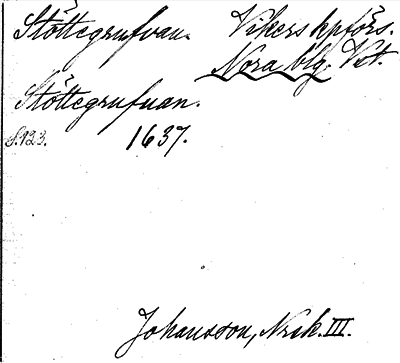 Stöttegrufvan. Vikers kpförs.
Nora blg. Vst.
Stöttegrufuan.
S.123. 1637.
Johansson, Nrsk. III.